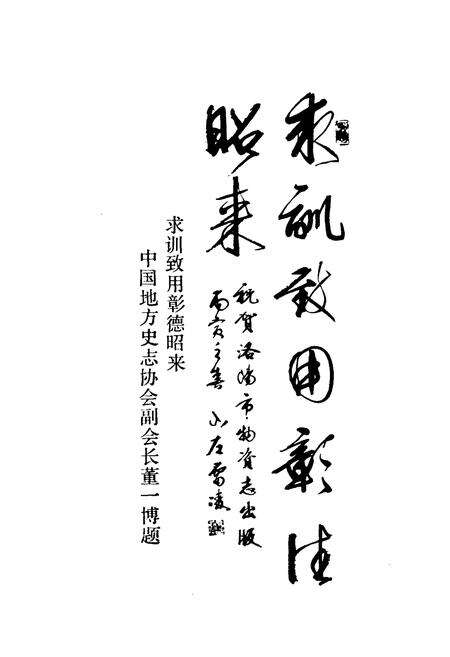 求训致用彰德
昭来
祝贺洛阳市物资志出版
丙寅之春
求训致用彰德昭来
中国地方史志协会副会长董一博题